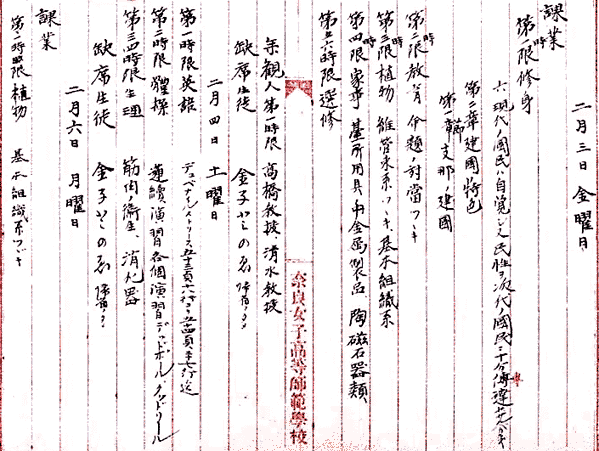 二月三日 金曜日
課業
第一時限 修身
六、現代ノ國民ハ自覚シテ文民性ヲ次代ノ國民ニ十分傳達
第二章 建國特色
第一節 支那ノ建國
第二時限 教育 命題ノ対當ツヾキ
第三時限 植物 維管束系ツヾキ、基本組織系
第四時限 家事 臺所用具ノ中金属製品、陶磁石器類、
第五六時限 選修
参観人 第一時限 高橋教授、清水教授
缺席生徒 金子
奈良女子高等師範學校
二月四日 土曜日
第一時限 英語 五十三頁十六行ヨリ五十四頁
第二時限 體操 連續演習各個演習デッドボール
第三四時限 生理 筋肉ノ衛生、消化器
缺席生徒 金子
二月六日 月曜日
課業
第一時限 植物 基本組織系ツヾキ